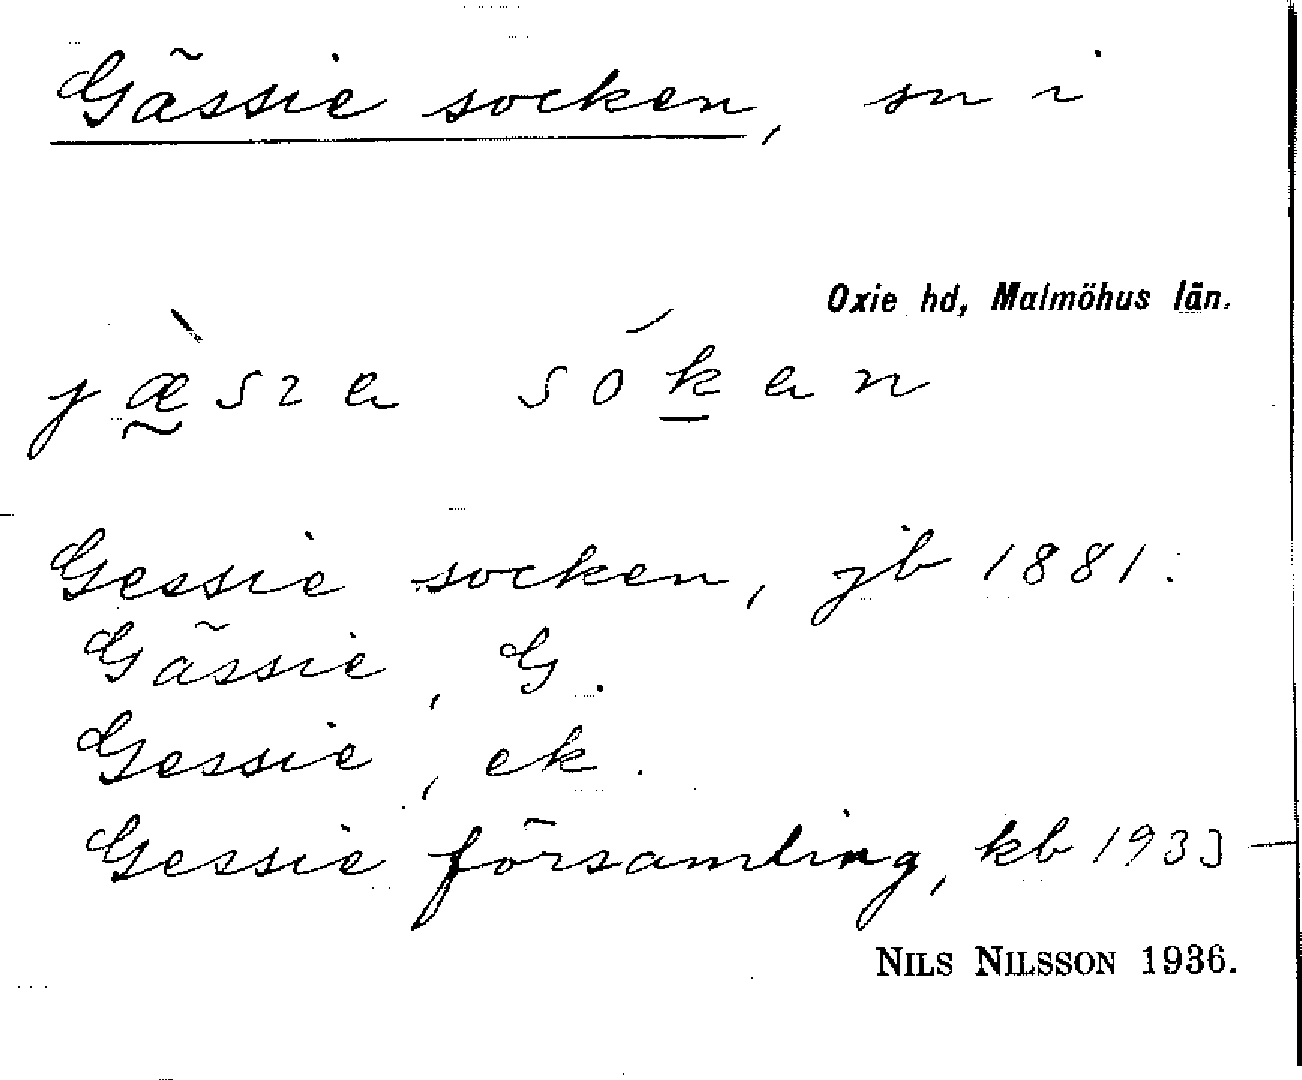 Gässie socken, sn i
Oxie hd, Malmöhus län.
Gessie socken, jb 1881.
Gässie, G.
Gessie, ek.
Gessie församling, kb 1933 –
NILS NILSSON 1936.